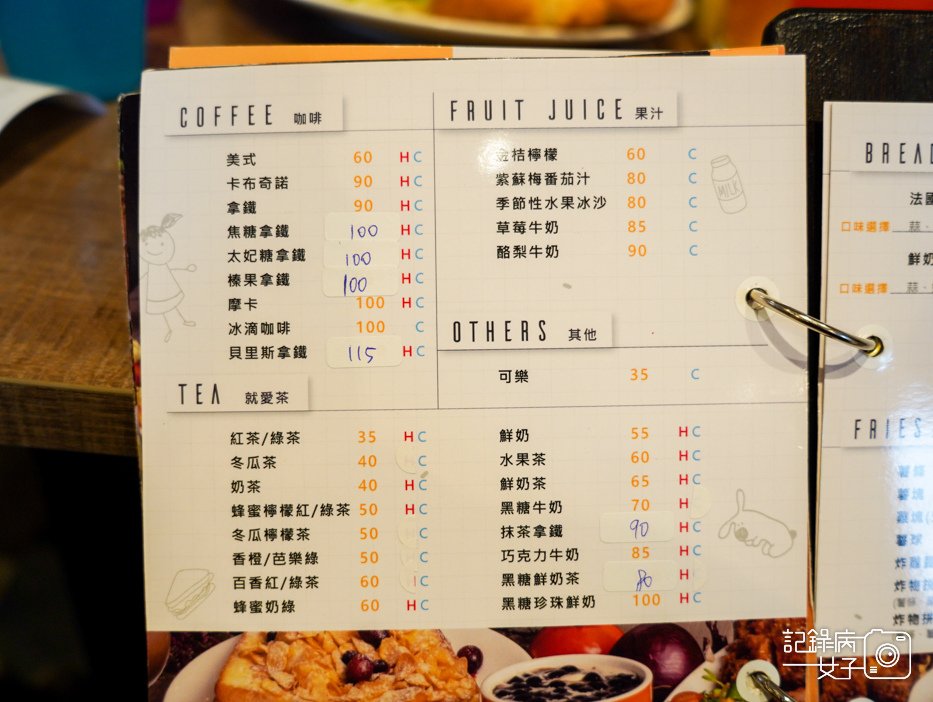 COFFEE 咖啡
美式 60 H C
卡布奇諾 90 H C
拿鐵 90 H C
焦糖拿鐵 100 H C
太妃糖拿鐵 100 H C
榛果拿鐵 100 H C
摩卡 100 H C
冰滴咖啡 100 C
貝里斯拿鐵 115 H C
FRUIT JUICE 果汁
金桔檸檬 60 C
紫蘇梅番茄汁 80 C
季節性水果冰沙 80 C
草莓牛奶 85 C
酪梨牛奶 90 C
MILK
OTHERS 其他
可樂 35 C
TEA 就愛茶
紅茶/綠茶 35 H C
冬瓜茶 40 C
奶茶 40 H C
蜂蜜檸檬紅/綠茶 50 H C
冬瓜檸檬茶 50 C
香橙/芭樂綠 50 C
百香紅/綠茶 60 C
蜂蜜奶綠 60 H C
鮮奶 55 H C
水果茶 60 H C
鮮奶茶 65 H C
黑糖牛奶 70 H
抹茶拿鐵 90 H C
巧克力牛奶 85 H C
黑糖鮮奶茶 80 H
黑糖珍珠鮮奶 100 H C
BREAD
法國
口味選擇 蒜.
鮮奶
口味選擇 蒜.
FRIES
薯條
薯塊
薯球
炸物拼
記錄病
女子